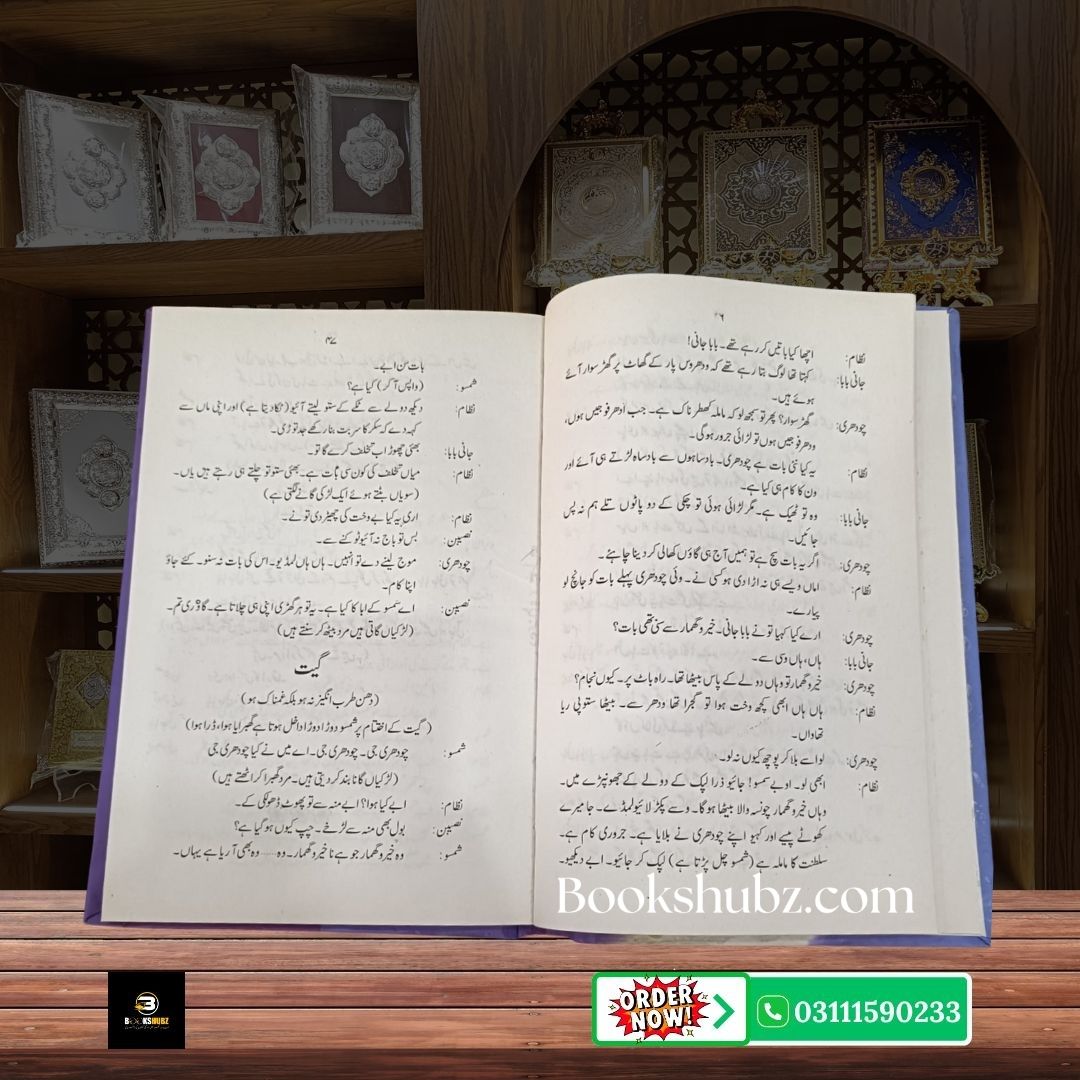 ۴۶
نظام: اچھا کیا باتیں کر رہے تھے۔ بابا جانی!
جانی بابا: کہتا تھا لوگ بتا رہے تھے کہ ودھر وس پار کے گھاٹ پر گھڑ سوار آئے
ہوئے ہیں۔
چودھری: گھڑ سوار؟ پھر تو سمجھ لو کہ ماملہ کھطرناک ہے۔ جب ادھر فوجیں ہوں،
ودھر فوجیں ہوں تو لڑائی جرور ہوگی۔
نظام: یہ کیا نئی بات ہے چودھری۔ بادساہوں سے بادساہ لڑتے ہی آئے اور
ون کا کام ہی کیا ہے۔
جانی بابا: وہ تو ٹھیک ہے۔ مگر لڑائی ہوئی تو چکی کے دو پاٹوں تلے ہم نہ پس
جائیں۔
چودھری: اگر یہ بات سچ ہے تو ہمیں آج ہی گاؤں کھالی کر دینا چاہئے۔
نظام: اماں ویسے ہی نہ اڑا دی ہو کسی نے۔ وئی چودھری پہلے بات کو جانچ لو
پیارے۔
چودھری: ارے کیا کہیا تو نے بابا جانی۔ خیرو گھمار سے سنی تھی بات؟
جانی بابا: ہاں، ہاں وسی سے۔
چودھری: خیرو گھمار تو وہاں دولے کے پاس بیٹھا تھا۔ راہ باٹ پر۔ کیوں نجام؟
نظام: ہاں ہاں ابھی کچھ وخت ہوا تو گجرا تھا ودھر سے۔ بیٹھا ستو پی ریا
تھا واں۔
چودھری: لو اسے بلا کر پوچھ کیوں نہ لو۔
نظام: ابھی لو۔ او بے سمسو! جائیو ذرا لپک کے دولے کے جھونپڑے میں۔
وہاں خیرو گھمار چونسہ والا بیٹھا ہوگا۔ وسے پکڑ لائیو لمڈے۔ جا میرے
کھوٹے پیسے اور کہیو اپنے چودھری نے بلایا ہے۔ جروری کام ہے۔
سلطنت کا ماملہ ہے (شمسو چل پڑتا ہے) لپک کر جائیو۔ ابے دیکھیو۔
۴۷
بات سن ابے۔
شمسو: (واپس آ کر) کیا ہے؟
نظام: دیکھ دولے سے ٹکے کے ستو لیتے آئیو (ٹکا دیتا ہے) اور اپنی ماں سے
کہہ دے کہ سکر کا سربت بنا رکھے جد توڑی۔
جانی بابا: بھئی چھوڑ اب تخلف کرے گا تو۔
نظام: میاں تخلف کی کون سی بات ہے۔ بھئی ستو تو چلتے ہی رہتے ہیں یاں۔
(سویاں بٹتے ہوئے ایک لڑکی گانے لگتی ہے)
نظام: اری یہ کیا بے وخت کی چھیڑ دی تو نے۔
نصیبن: بس تو باج نہ آئیو ٹوکنے سے۔
چودھری: موج لینے دے تو انہیں۔ ہاں ہاں لمڈیو۔ اس کی بات نہ سنو۔ کئے جاؤ
اپنا کام۔
نصیبن: اے سمسو کے ابا کا کیا ہے۔ یہ تو ہر گھڑی اپنی ہی چلاتا ہے۔ گاؤ ری تم۔
(لڑکیاں گاتی ہیں مرد بیٹھ کر سنتے ہیں)
گیت
(دھن طرب انگیز نہ ہو بلکہ غمناک ہو)
(گیت کے اختتام پر شمسو دوڑا دوڑا داخل ہوتا ہے گھبرایا ہوا، ڈرا ہوا)
شمسو: چودھری جی۔ چودھری جی۔ اے میں نے کیا چودھری جی
(لڑکیاں گانا بند کر دیتی ہیں۔ مرد گھبرا کر اٹھتے ہیں)
نظام: ابے کیا ہوا؟ ابے منہ سے تو پھوٹ ڈھولکی کے۔
نصیبن: بول بھی منہ سے لڑخے۔ چپ کیوں ہو گیا ہے؟
شمسو: وہ خیرو گھمار جو ہے نا خیرو گھمار۔ وہ ...... وہ بھی آ ریا ہے یہاں۔
Bookshubz.com
BOOKSHUBZ
ORDER NOW!
03111590233